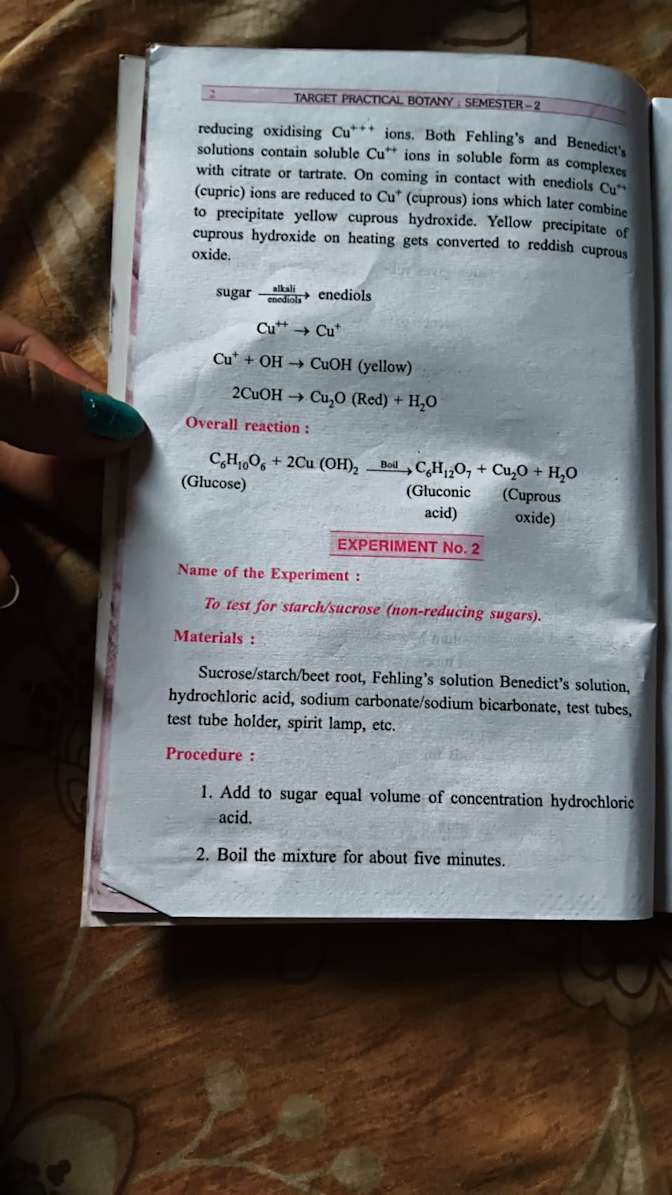 2
TARGET PRACTICAL BOTANY : SEMESTER – 2
reducing oxidising Cu⁺⁺⁺ ions. Both Fehling's and Benedict's
solutions contain soluble Cu⁺⁺ ions in soluble form as complexes
with citrate or tartrate. On coming in contact with enediols Cu⁺⁺
(cupric) ions are reduced to Cu⁺ (cuprous) ions which later combine
to precipitate yellow cuprous hydroxide. Yellow precipitate of
cuprous hydroxide on heating gets converted to reddish cuprous
oxide.
sugar alkali/enediols → enediols
Cu⁺⁺ → Cu⁺
Cu⁺ + OH → CuOH (yellow)
2CuOH → Cu₂O (Red) + H₂O
Overall reaction :
C₆H₁₀O₆ + 2Cu (OH)₂ Boil → C₆H₁₂O₇ + Cu₂O + H₂O
(Glucose) (Gluconic (Cuprous
acid) oxide)
EXPERIMENT No. 2
Name of the Experiment :
To test for starch/sucrose (non-reducing sugars).
Materials :
Sucrose/starch/beet root, Fehling's solution Benedict's solution,
hydrochloric acid, sodium carbonate/sodium bicarbonate, test tubes,
test tube holder, spirit lamp, etc.
Procedure :
1. Add to sugar equal volume of concentration hydrochloric
acid.
2. Boil the mixture for about five minutes.